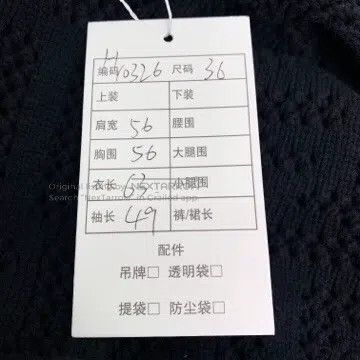 编码 H10326 尺码 36
上装 下装
肩宽 56 腰围
胸围 56 大腿围
衣长 63 小腿围
袖长 49 裤/裙长
配件
吊牌□ 透明袋□
提袋□ 防尘袋□